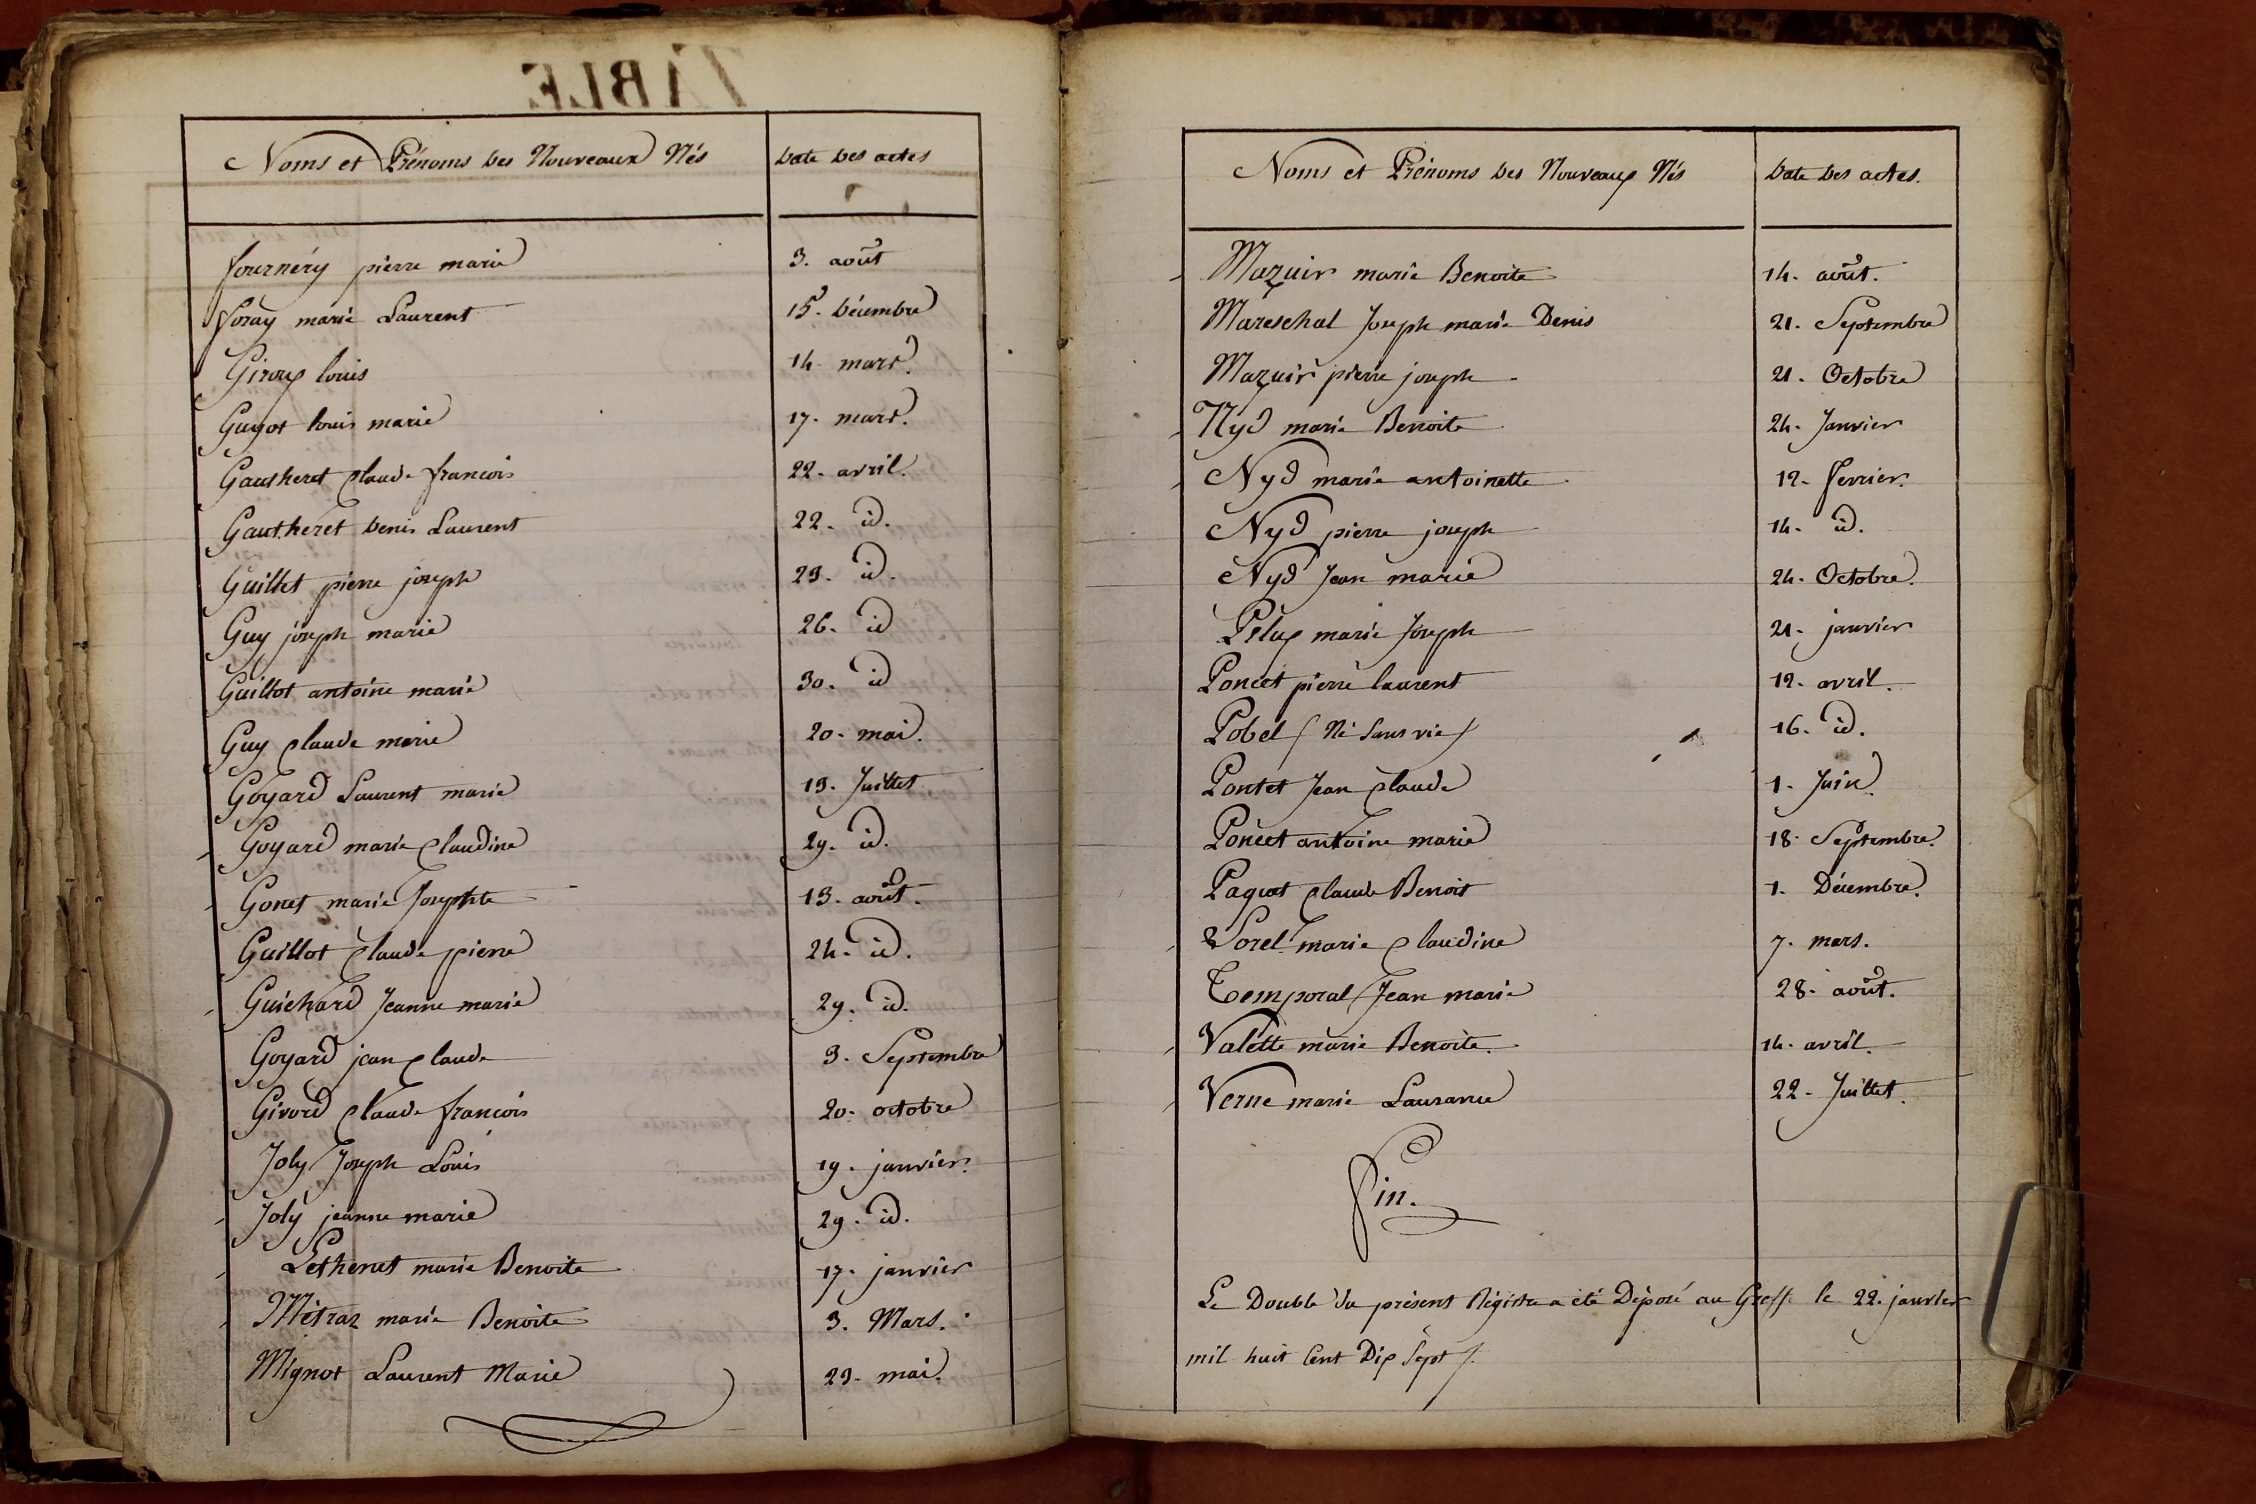 TABLE
Noms et Prénoms des Nouveaux Nés Date des actes
fournéry pierre marie 3. août
foray marie Laurent 15. décembre
Giroux louis 14. mars.
Guyot louis marie 17. mars.
Gautheret Claude françois 22. avril.
Gautheret denis Laurent 22. id.
Guillet pierre joseph 23. id.
Guy joseph marie 26. id
Guillot antoine marie 30. id
Guy Claude marie 20. mai.
Goyard Laurent marie 13. Juillet
Goyard marie Claudine 29. id.
Gonet marie Josephte 13. août.
Guillot Claude pierre 24. id.
Guichard Jeanne marie 29. id.
Goyard jean Claude 3. Septembre
Givord Claude françois 20. octobre
Joly Joseph Louis 19. janvier.
Joly jeanne marie 29. id.
Lethenet marie Benoite 17. janvier
Métraz marie Benoite 3. Mars.
Mignot Laurent Marie 23. mai.
Noms et Prénoms des Nouveaux Nés Date des actes.
Mazuir marie Benoite 14. août.
Mareschal Joseph marie Denis 21. Septembre
Mazuir pierre joseph 21. Octobre
Nyd marie Benoite 24. Janvier
Nyd marie antoinette 12. fevrier.
Nyd pierre joseph 14. id.
Nyd Jean marie 24. Octobre.
Pelux marie Joseph 21. janvier
Poncet pierre laurent 12. avril.
Pobel (Né Sans vie) 16. id.
Pontet Jean Claude 1. Juin.
Poncet antoine marie 18. Septembre.
Paquet Claude Benoit 1. Décembre.
Sorel marie Claudine 7. mars.
Temporal Jean marie 28. août.
Valette marie Benoite. 14. avril.
Verne marie Lauranne 22. Juillet.
fin.
Le Double du présent Régistre a été Déposé au Greffe le 22. janvier
mil huit Cent Dix Sept